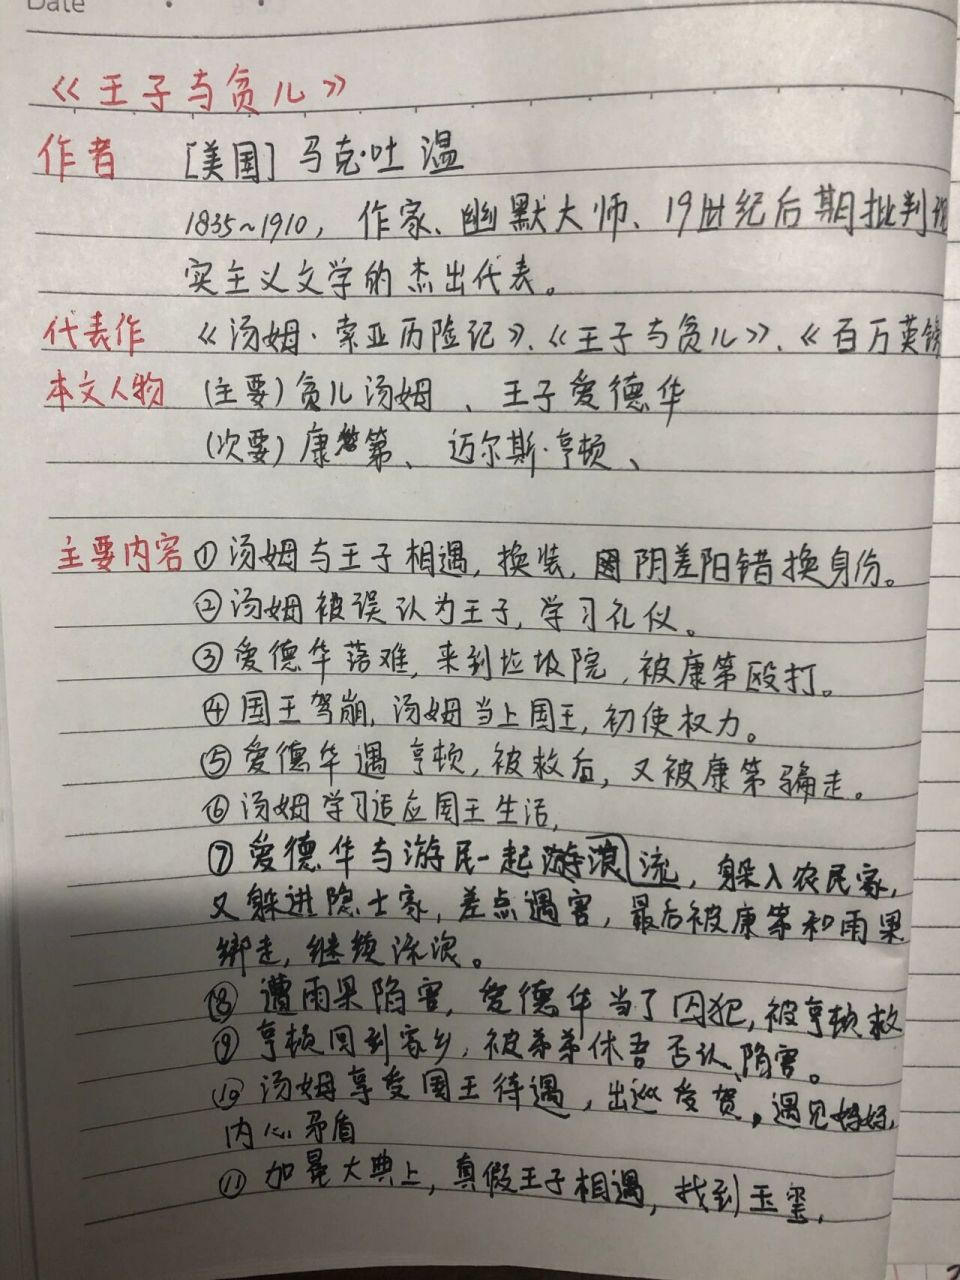 Date
《王子与贫儿》
作者 [美国] 马克·吐温
1835~1910, 作家、幽默大师、19世纪后期批判现
实主义文学的杰出代表。
代表作 《汤姆·索亚历险记》、《王子与贫儿》、《百万英镑
本文人物 (主要) 贫儿汤姆 、王子爱德华
(次要) 康第、迈尔斯·亨顿、
主要内容 ①汤姆与王子相遇, 换装, 阴差阳错换身份。
②汤姆被误认为王子, 学习礼仪。
③爱德华落难, 来到垃圾院, 被康第殴打。
④国王驾崩, 汤姆当上国王, 初使权力。
⑤爱德华遇亨顿, 被救后, 又被康第骗走。
⑥汤姆学习适应国王生活,
⑦爱德华与游民一起游浪流, 躲入农民家,
又躲进隐士家, 差点遇害, 最后被康第和雨果
绑走, 继续流浪。
⑧遭雨果陷害, 爱德华当了囚犯, 被亨顿救
⑨亨顿回到家乡, 被弟弟休吾否认、陷害。
⑩汤姆享受国王待遇, 出巡受贺, 遇见妈妈,
内心矛盾
⑪加冕大典上, 真假王子相遇, 找到玉玺,